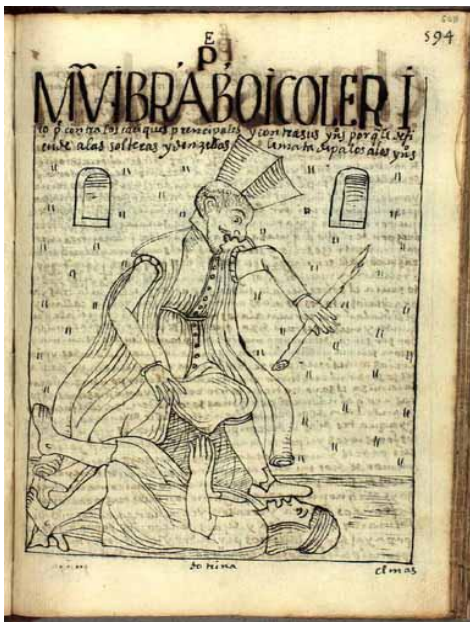 594
E
P
MṼIBRABOICOLERI
co p̃ contra los caciques prencipales y contra sus yñs porq̃ le defi
ende a las solteras y donzellas le mata de palos a los yñs
dotrina
el mas